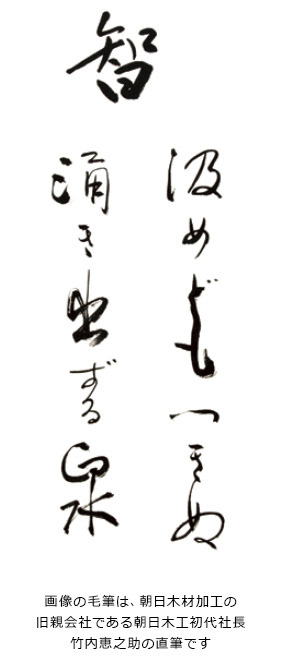 智
汲めどもつきぬ
涌き出ずる泉
画像の毛筆は、朝日木材加工の
旧親会社である朝日木工初代社長
竹内恵之助の直筆です